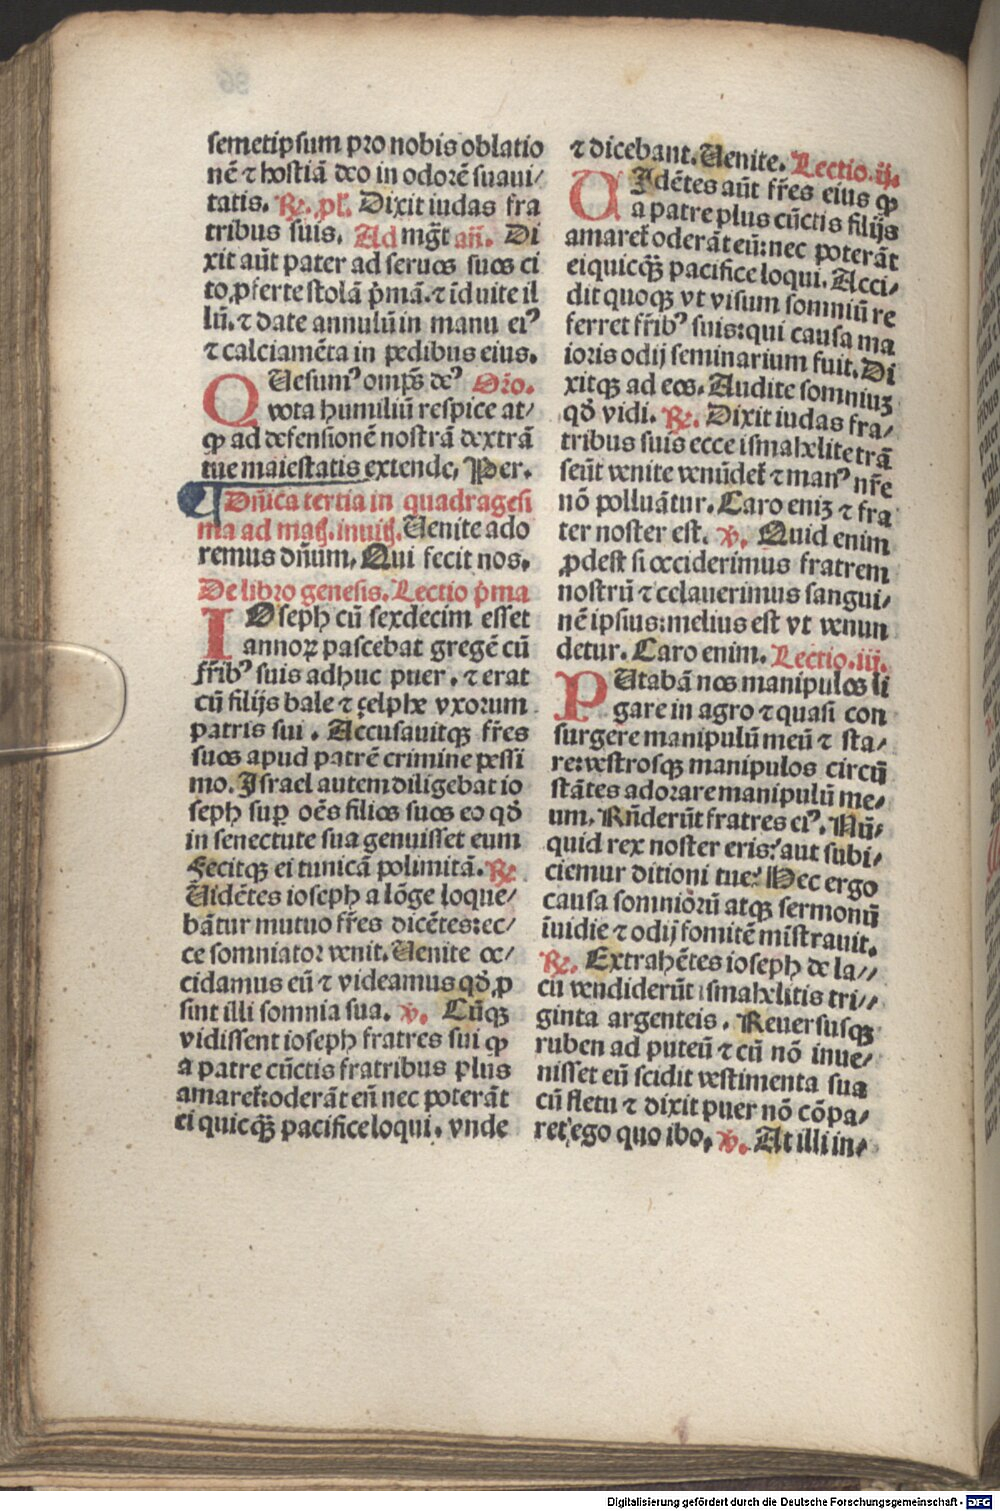 semetipsum pro nobis oblatio
nē ⁊ hostiā deo in odorē suaui/
tatis. ℟. pſ. Dixit iudas fra
tribus suis. Ad mg̃t añ. Di
xit aūt pater ad seruos suos ci
to ꝓferte stolā p̃mā. ⁊ īduite il
lū. ⁊ date annulū in manu eiꝰ
⁊ calciamēta in pedibus eius.
QUesumꝰ omp̄s deꝰ Or̄o.
vota humiliū respice at/
ꝙ ad defensionē nostrā dextrā
tue maiestatis extende, Per.
Dn̄ica tertia in quadragesi
ma ad matḣ. inuitḣ. Uenite ado
remus dn̄um. Qui fecit nos.
De libro genesis. Lectio p̃ma
IOseph cū sexdecim esset
annoꝝ pascebat gregē cū
fr̄ibꝰ suis adhuc puer. ⁊ erat
cū filijs bale ⁊ çelphe vxorum
patris sui. Accusauitqꝫ fr̄es
suos apud patrē crimine pessi
mo. Israel autem diligebat io
seph suꝑ oēs filios suos eo qď
in senectute sua genuisset eum
Fecitqꝫ ei tunicā polimitā. ℟
Uidētes ioseph a lōge loque/
bātur mutuo fr̄es dicētes: ec/
ce somniator venit. Uenite oc/
cidamus eū ⁊ videamus qď ꝓ
sint illi somnia sua. ℣. Cūqꝫ
vidissent ioseph fratres sui ꝙ
a patre cūctis fratribus plus
amaret̃: oderāt eū nec poterāt
ei quicqꝫ̃ pacifice loqui. vnde
⁊ dicebant. Uenite. Lectio. ij.
UIdētes aūt fr̄es eius ꝙ
a patre plus cūctis filijs
amaret̃ oderāt eū: nec poterāt
ei quicqꝫ̃ pacifice loqui. Acci/
dit quoqꝫ vt visum somniū re
ferret fr̄ibꝰ suis: qui causa ma
ioris odij seminarium fuit. Di
xitqꝫ ad eos. Audite somniuꝫ
qď vidi. ℟. Dixit iudas fra/
tribus suis ecce ismahelite trā
seūt venite venūdet̃ ⁊ manꝰ nr̄e
nō polluātur. Caro eniꝫ ⁊ fra
ter noster est. ℣. Quid enim
ꝓdest si occiderimus fratrem
nostrū ⁊ celauerimus sangui/
nē ipsius: melius est vt venun
detur. Caro enim. Lectio. iij.
PUtabā nos manipulos li
gare in agro ⁊ quasi con
surgere manipulū meū ⁊ sta/
re: vestrosqꝫ manipulos circū
stātes adorare manipulū me/
um. Rn̄derūt fratres eiꝰ. Nū/
quid rex noster eris? aut subi/
ciemur ditioni tue? Hec ergo
causa somniorū atqꝫ sermonū
īuidie ⁊ odij fomitē mīstrauit.
℟. Extrahētes ioseph de la//
cū vendiderūt ismahelitis tri//
ginta argenteis. Reuersusqꝫ
ruben ad puteū ⁊ cū nō inue/
nisset eū scidit vestimenta sua
cū fletu ⁊ dixit puer nō cōpa/
ret, ego quo ibo. ℣. At illi in/
Digitalisierung gefördert durch die Deutsche Forschungsgemeinschaft - DFG